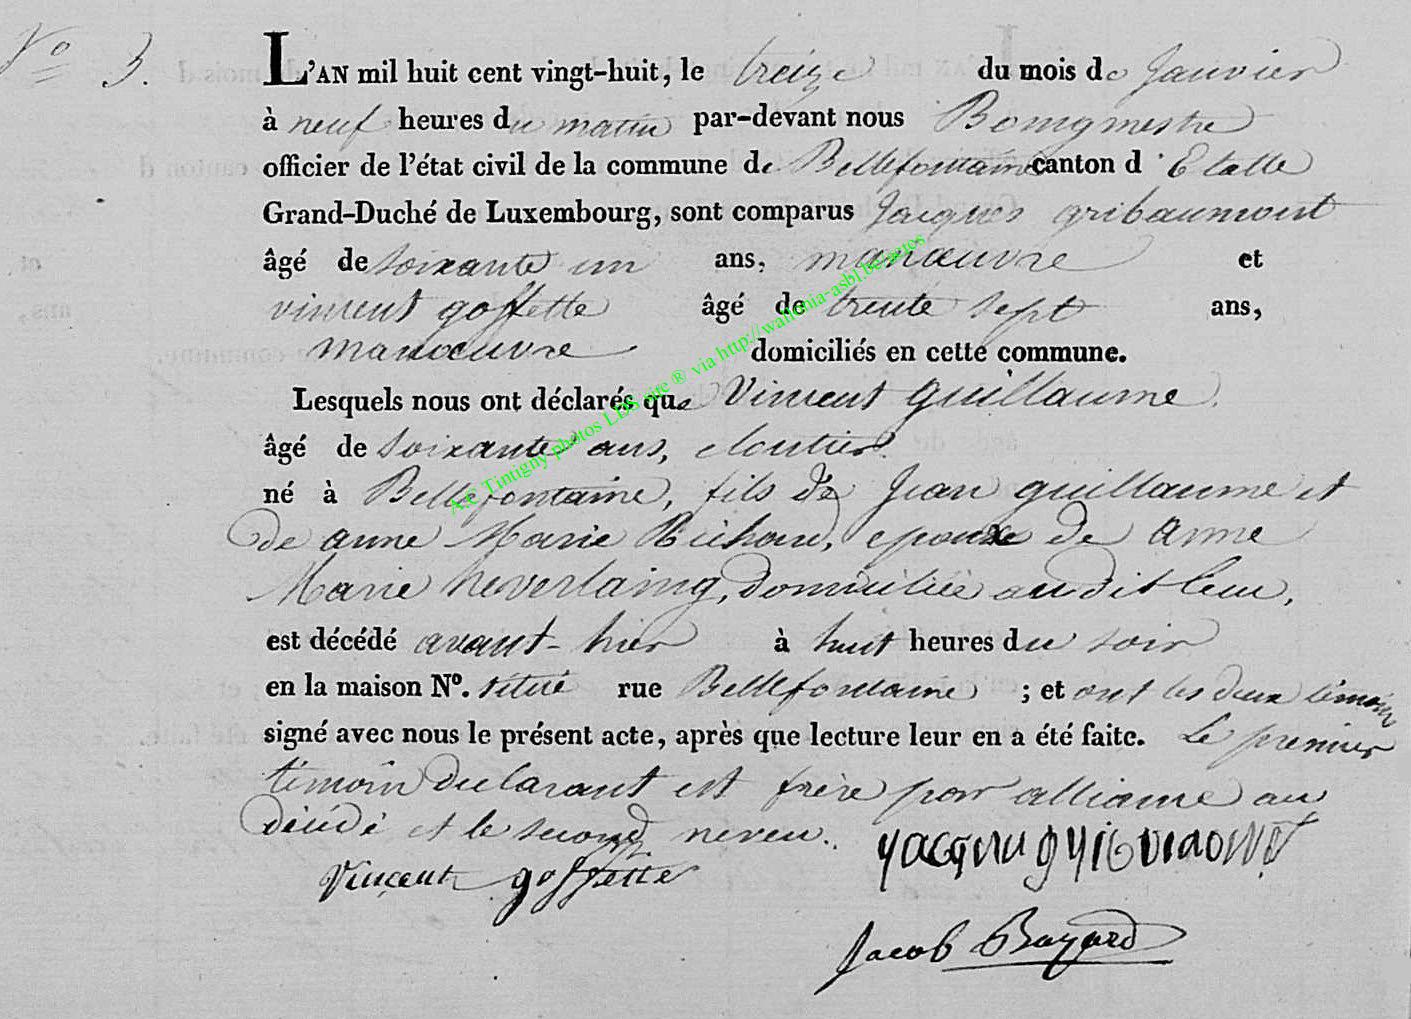 N° 3.
L'AN mil huit cent vingt-huit, le treize du mois de Janvier
à neuf heures du matin par-devant nous Bourgmestre
officier de l'état civil de la commune de Bellefontaine canton d'Etalle
Grand-Duché de Luxembourg, sont comparus Jacques gribaumont
âgé de soixante un ans, manœuvre et
vincent goffette âgé de trente sept ans,
manœuvre domiciliés en cette commune.
Lesquels nous ont déclarés que Vincent guillaume.
âgé de soixante ans, cloutier.
né à Bellefontaine, fils de Jean guillaume et
de anne Marie Richard, epoux de anne
Marie heverlaing, domiciliée au dit lieu,
est décédé avant-hier à huit heures du soir
en la maison N°. située rue Bellefontaine ; et ont les deux témoin
signé avec nous le présent acte, après que lecture leur en a été faite. Le premier
témoin declarant est frère par alliance au
décédé et le second neveu.
Vincent goffette
Jacob Bayard
A.C Tintigny photos LDS site ® via http://wallonia-asbl.be.actes